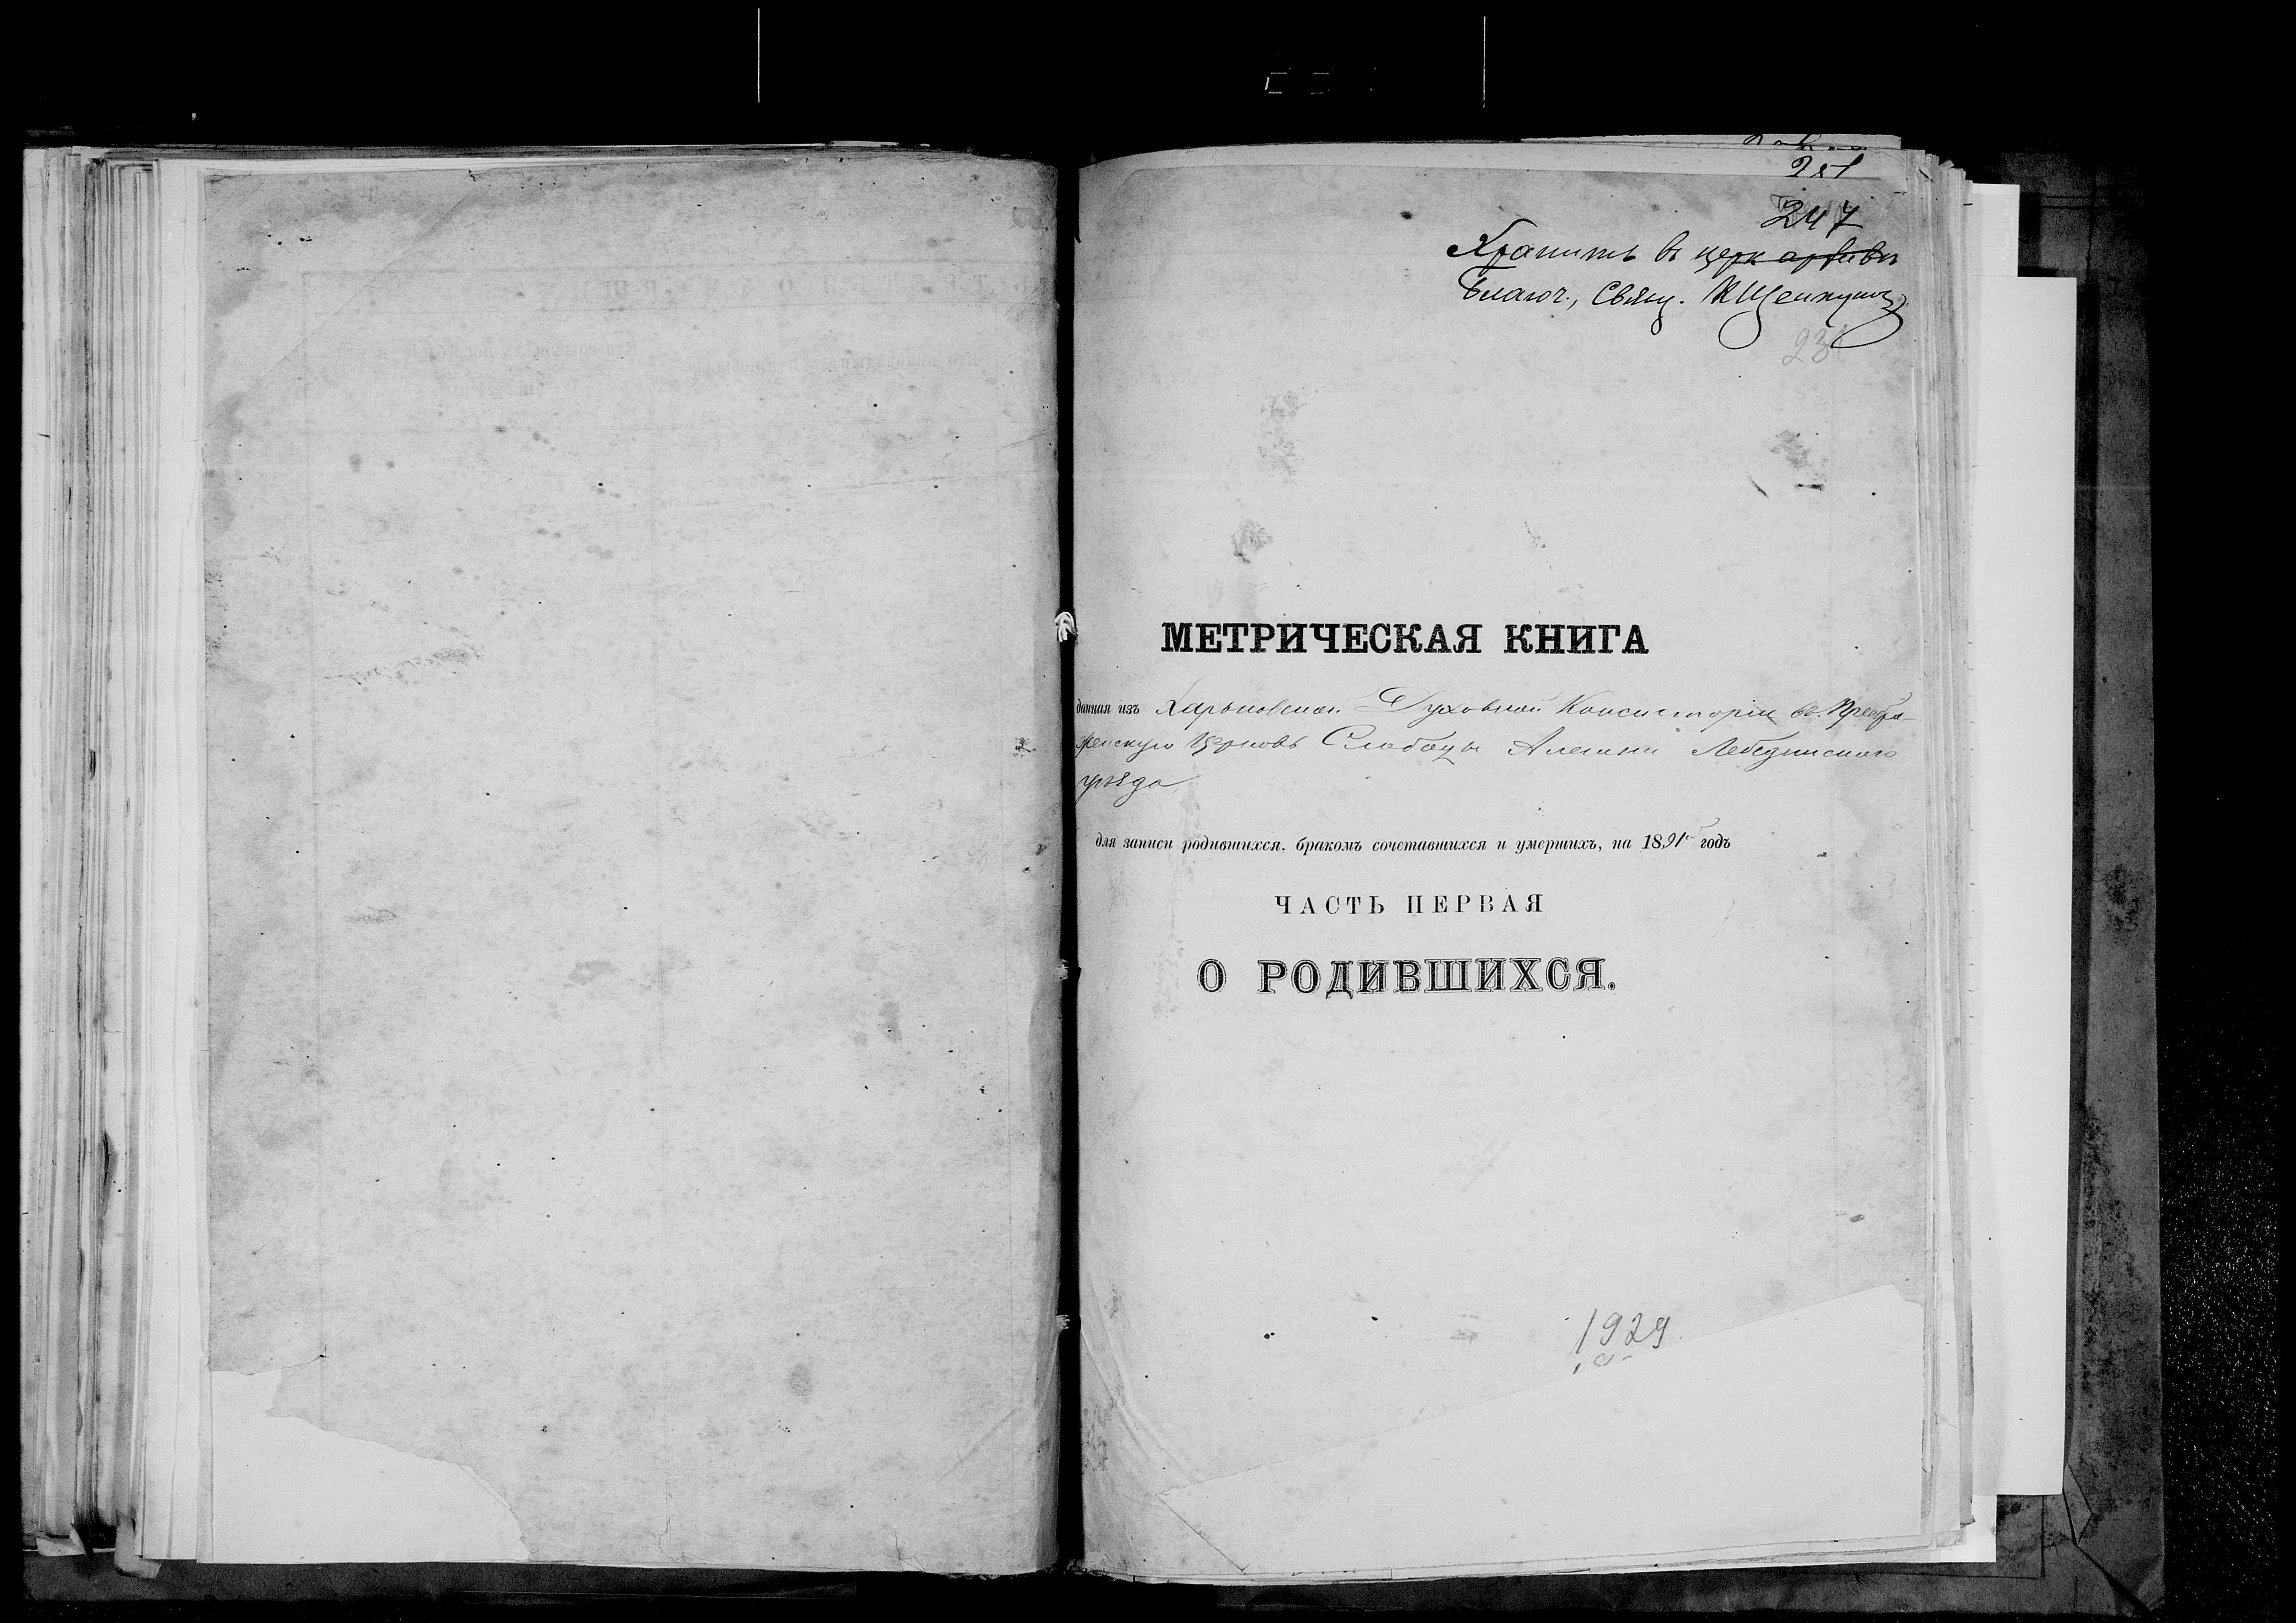 247
Хранить въ церк архивѣ
Благоч., Свящ. К Щелкуновъ
231
МЕТРИЧЕСКАЯ КНИГА
данная изъ Харьковской Духовной Консисторіи въ Преобра-
женскую Церковь Слободы Алешни Лебединскаго
уѣзда
для записи родившихся, бракомъ сочетавшихся и умершихъ, на 1891 годъ
ЧАСТЬ ПЕРВАЯ
О РОДИВШИХСЯ.
1929